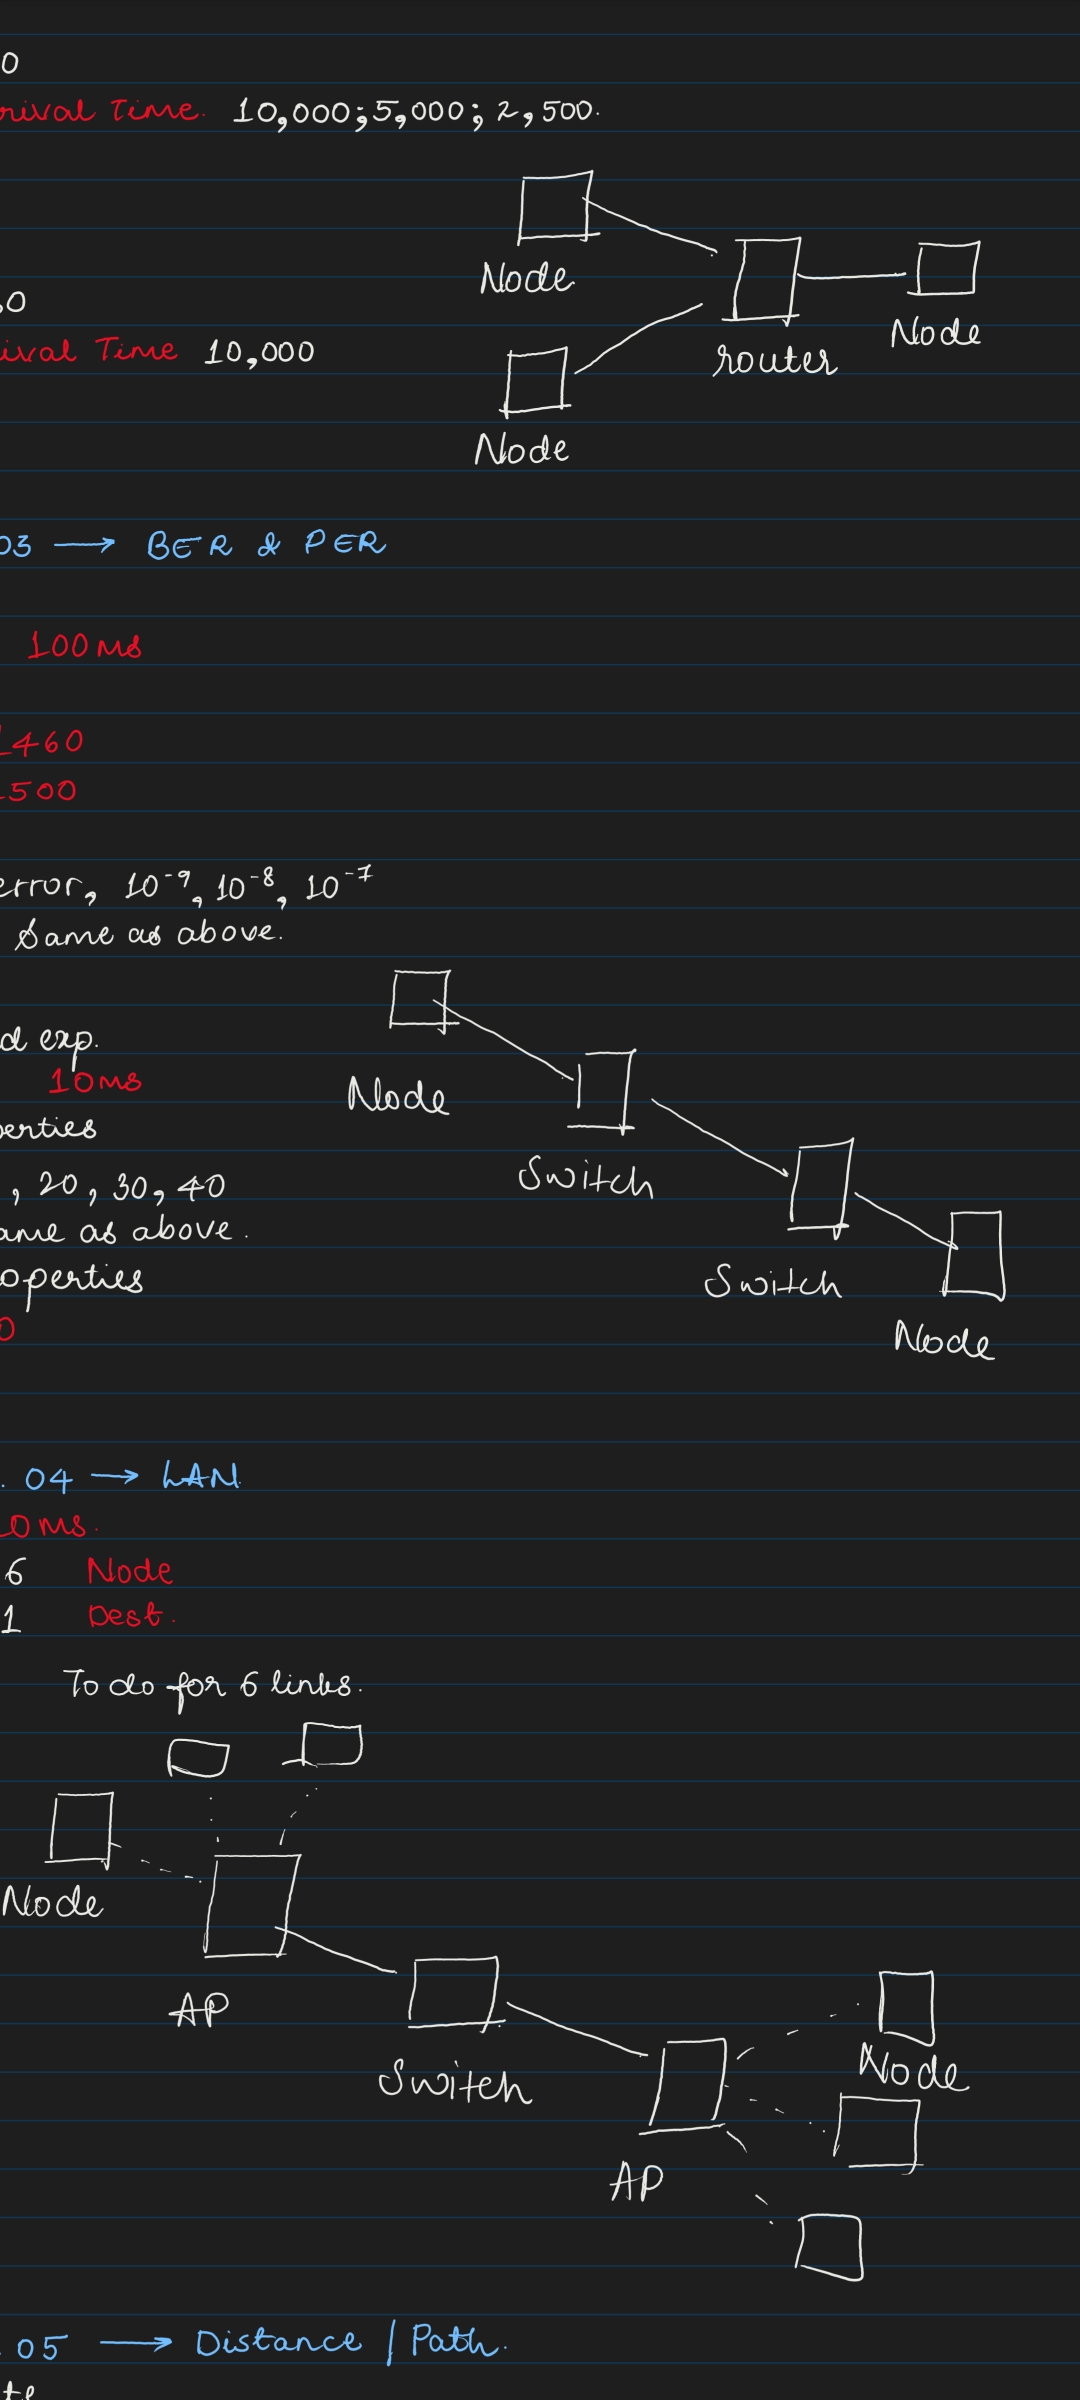 0
rival Time. 10,000; 5,000; 2,500.
Node
router
Node
0
ival Time 10,000
Node
03 → BER & PER
100ms
1460
1500
error, 10⁻⁹, 10⁻⁸, 10⁻⁷
Same as above.
d exp.
10ms
Node
perties
Switch
, 20, 30, 40
ame as above.
operties
Switch
0
Node
. 04 → LAN
0ms.
6 Node
1 Dest.
To do for 6 links.
Node
AP
Switch
Node
AP
. 05 → Distance / Path.
te